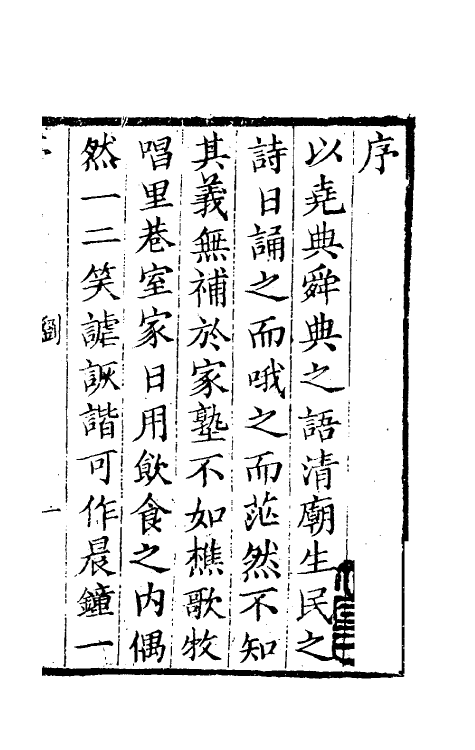 序
以堯典舜典之語清廟生民之
詩日誦之而哦之而茫然不知
其義無補於家塾不如樵歌牧
唱里巷室家日用飲食之內偶
然一二笑謔詼諧可作晨鐘一
劉
一